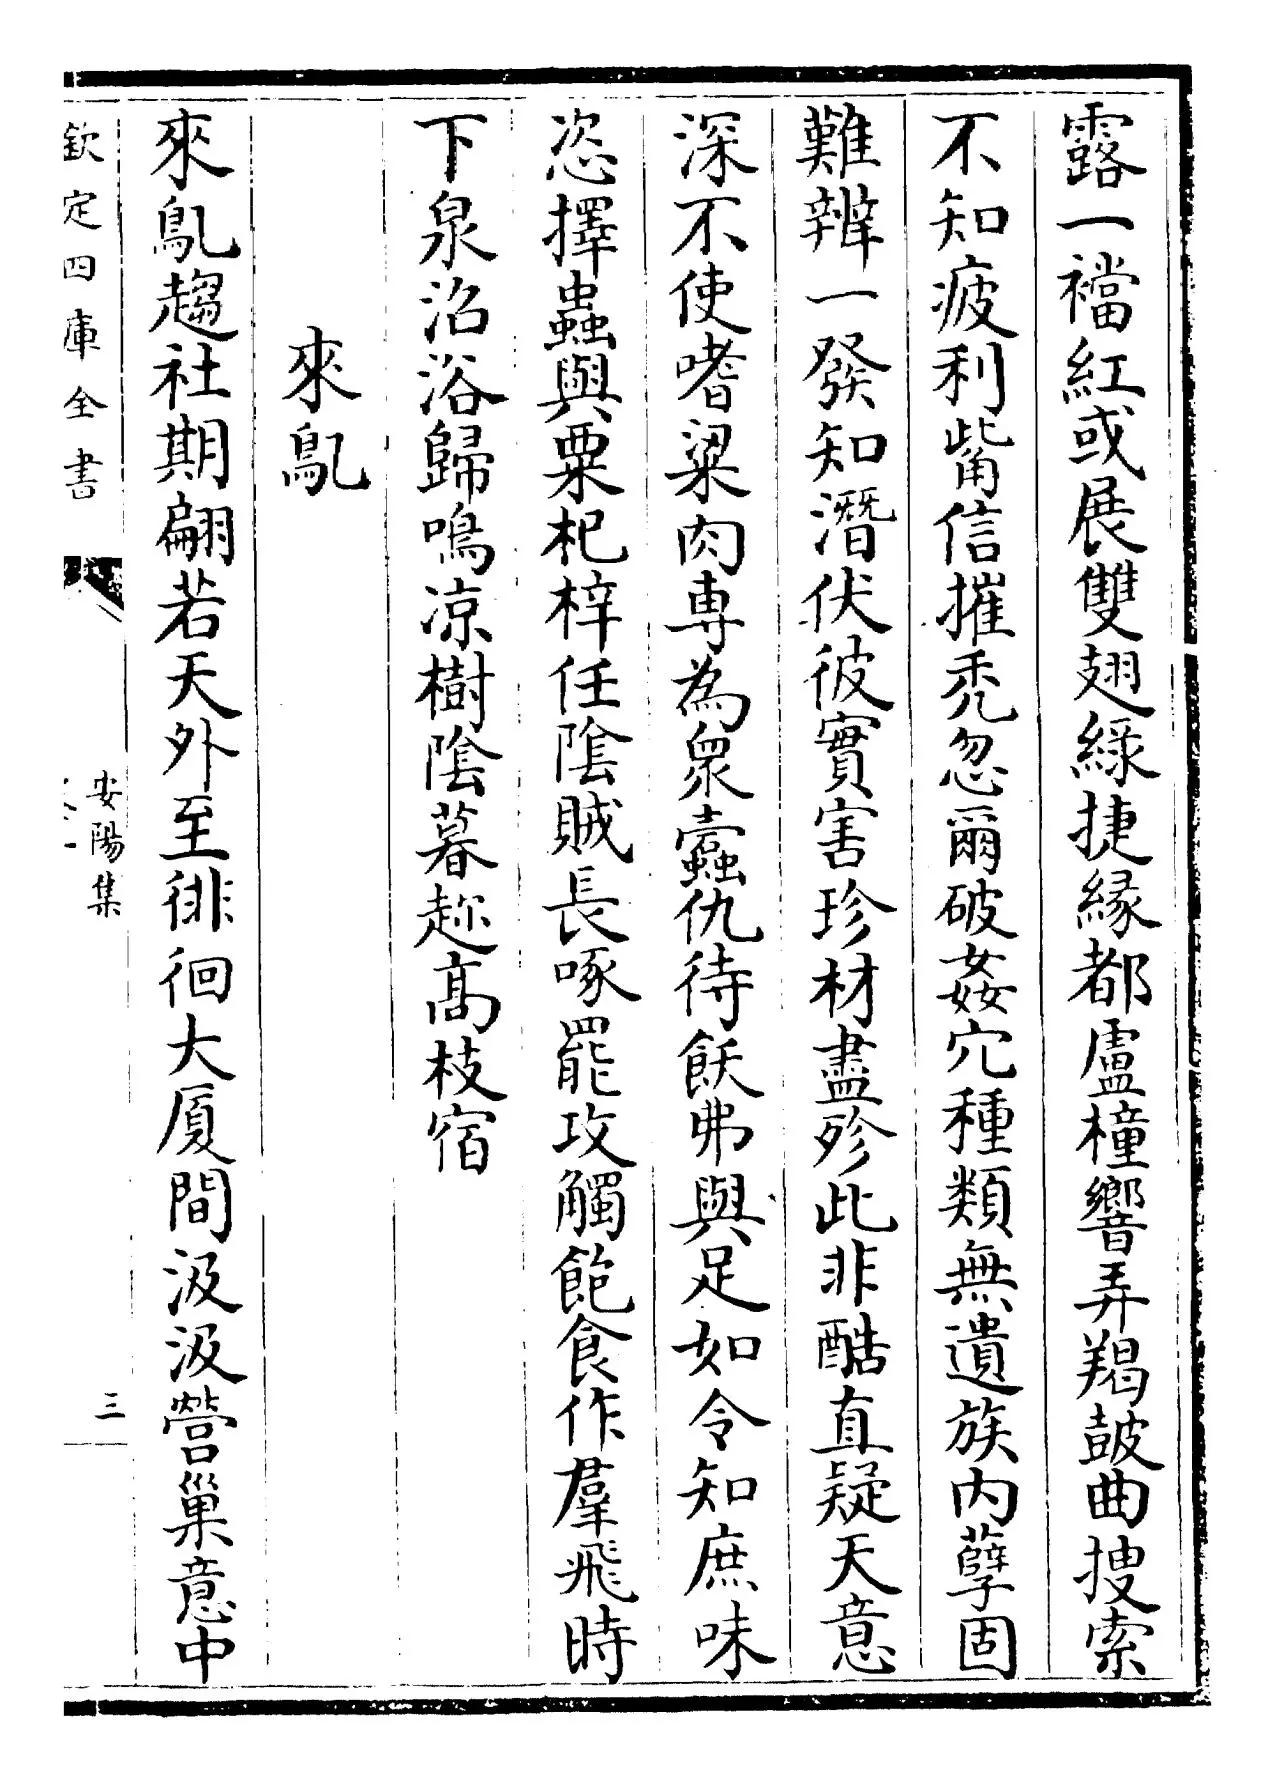 露一襠紅或展雙翅緑捷縁都盧橦響弄羯鼓曲捜索
不知疲利觜信摧禿忽爾破姦穴種類無遺族内孽固
難辨一發知潛伏彼實害珍材盡殄此非酷直疑天意
深不使嗜粱肉専為衆蠧仇待飫弗與足如令知庶味
恣擇蟲與粟杞梓任陰賊長啄罷攻觸飽食作羣飛時
下泉沿浴歸鳴凉樹陰暮趂髙枝宿
來鳦
來鳦趨社期翩若天外至徘徊大厦間汲汲營巢意中
欽定四庫全書
安陽集
三